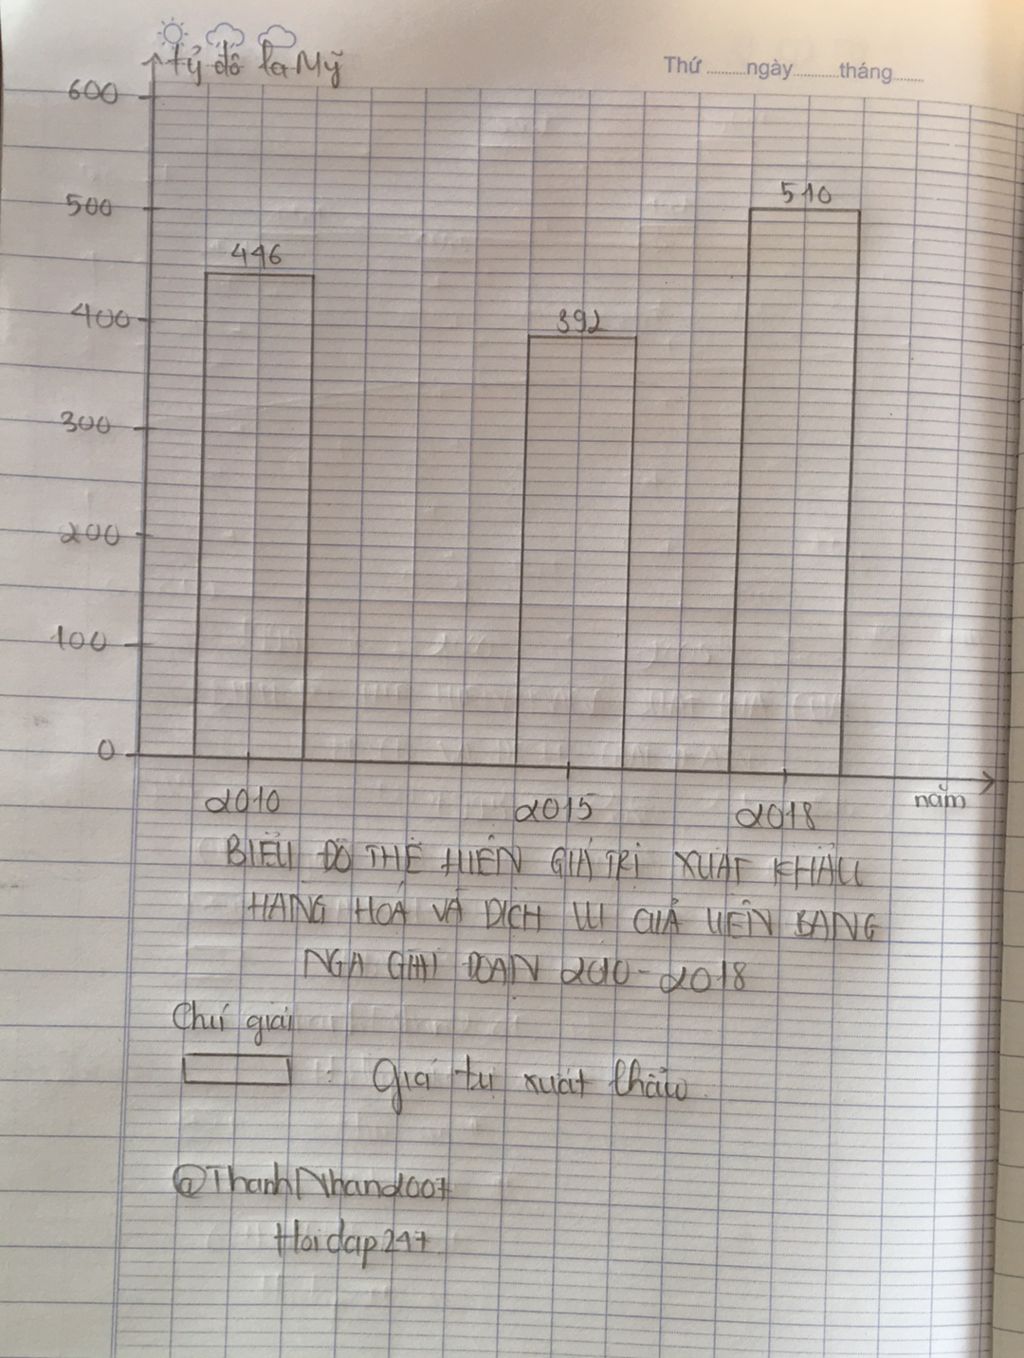 tỷ đô la Mỹ
Thứ ........ngày.........tháng......
600
500
400
300
200
100
0
446
392
510
2010
2015
2018
năm
BIỂU ĐỒ THỂ HIỆN GIÁ TRỊ XUẤT KHẨU
HÀNG HOÁ VÀ DỊCH VỤ CUẢ LIÊN BANG
NGA GIAI ĐOẠN 2010-2018
Chú giải
: Giá trị xuất khẩu
@ThanhNhan2007
Hoidap247